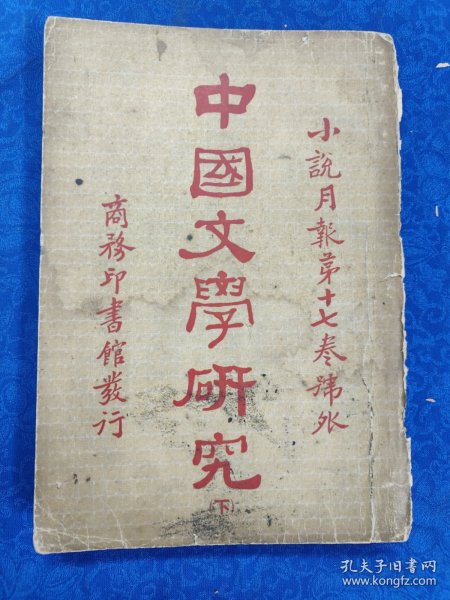 小說月報第十七卷號外
中國文學研究
(下)
商務印書館發行
孔夫子旧书网
www.kongfz.com